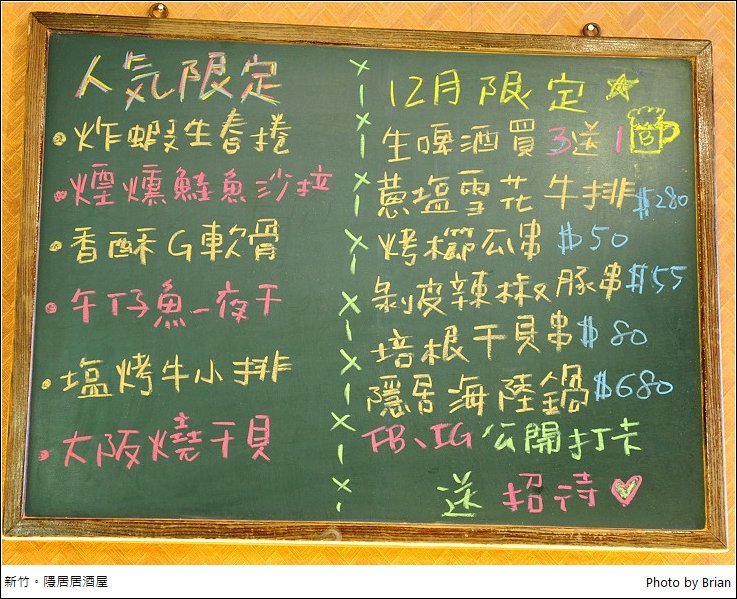 人気限定
炸蝦生春捲
煙燻鮭魚沙拉
香酥G軟骨
午仔魚一夜干
塩烤牛小排
大阪燒干貝
12月限定
生啤酒買3送1
蔥塩雪花牛排$280
烤櫛瓜串$50
剝皮辣椒豚串$55
培根干貝串$80
隱居海陸鍋$680
FB、IG公開打卡
送招待
新竹。隱居居酒屋
Photo by Brian